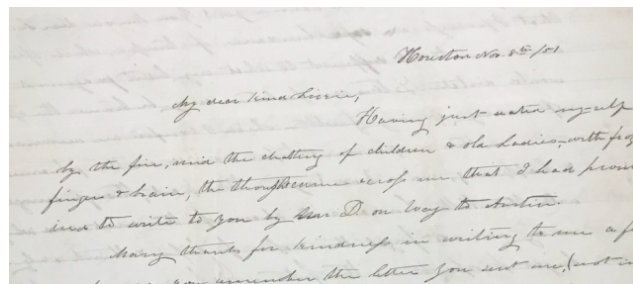 Houston Nov. 8th /51
My dear kind Lizzie,
Having just seated myself
by the fire, mid the chatting of children & old Ladies, with
finger & brain, the thought came across me, that I had
to write to you by Mr D on way to Austin.
Many thanks for kindness in writing to me a
you remember the letter you sent me, (not